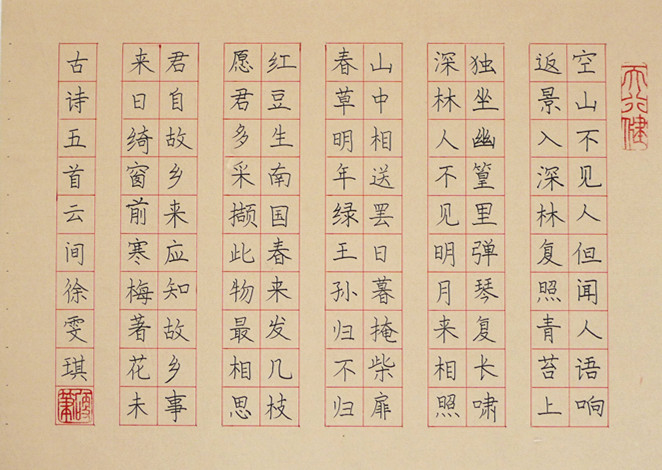 天行健
空山不见人但闻人语响
返景入深林复照青苔上
独坐幽篁里弹琴复长啸
深林人不见明月来相照
山中相送罢日暮掩柴扉
春草明年绿王孙归不归
红豆生南国春来发几枝
愿君多采撷此物最相思
君自故乡来应知故乡事
来日绮窗前寒梅著花未
古诗五首云间徐雯琪